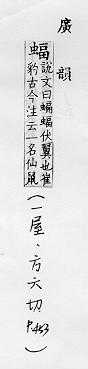 廣韻
蝠說文曰蝙蝠伏翼也崔
豹古今注云一名仙鼠
(一屋、方六切 P.453)